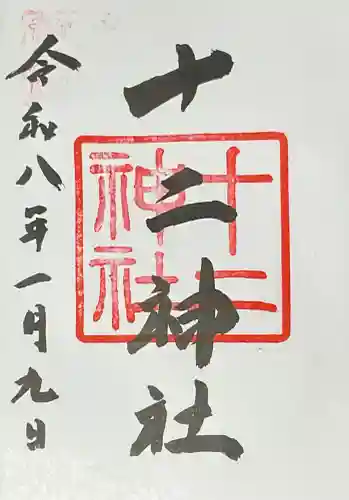 十二神社
令和八年一月九日
十二
神社